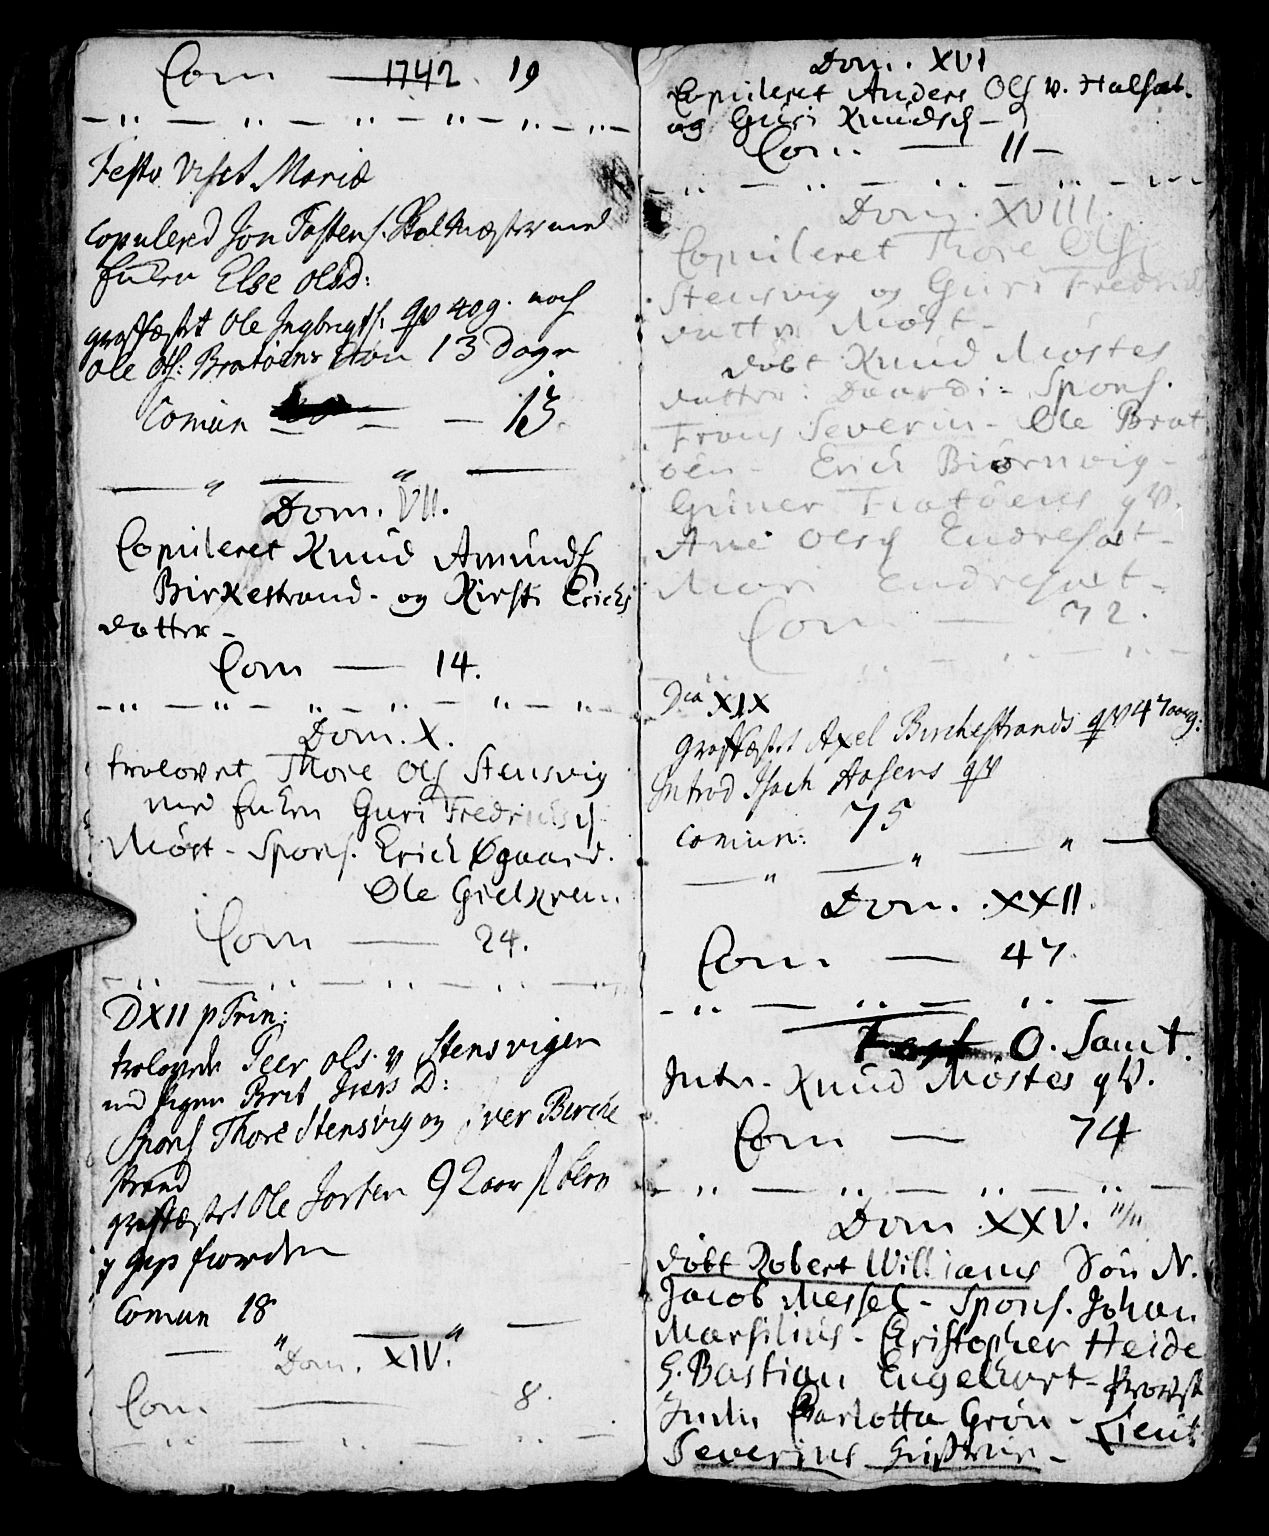 Com — 1742. 19
Festo Visit Mariæ
copulered Jon Tostens. Skolemester med
Enken Else Olsd:
grafæstet Ole Ingbrigts. qv 40 g. noch
Ole Ols: Bratöens Dön 13 Dage
Comun — 13.
Dom. VII.
Copuleret Knud Amunds
Birkestrand - og Kirsti Erichs
datter -
Com — 14.
Dom. X.
trolovet Thore Ols Stensvig
med Enken Guri Fredrichs
Möst - Spons. Erich Øgaard.
Ole Gielkrem.
Com — 24.
D XII p Trin:
trolovede Peer Ols. v Stensvigen
med Pigen Brit Ivers D:
Spons Thore Stensvig og Iver Birche
strand
grafæstet Ole Jorten 92 aar
fiorden
Comun 18
Dom. XIV.
Com — 8.
Dom. XVI
Copuleret Anders Ols v. Halsæt.
og Guri Knudsd -
Com — 11 -
Dom. XVIII.
Copuleret Thore Ols
Stensvig og Guri Fredrichs
datter Möst -
döbt Knud Möstes
datter: Daardi - Spons.
Frans Severin - Ole Brat
öen - Erich Biörnvig -
Guner Bratöens qv.
Ane Olsd Endresæt -
Mari Endresæt -
Com — 72.
Dca XIX
grafæstet Axel Birchestrands qv 47 aar g:
Introd Isach Aasens qv
Comun: 75
Dom. XXII.
Com — 47.
Fest O. Sanct.
Intr. Knud Möstes qv.
Com — 74
Dom. XXV. 11/11
döbt Robert Williams Sön N.
Jacob Messel - Spons. Johan
Marsilius - Christopher Heide
S. Bastian Engelhart - Provst
Junfr Charlotta Grön - Lieut
Severinus